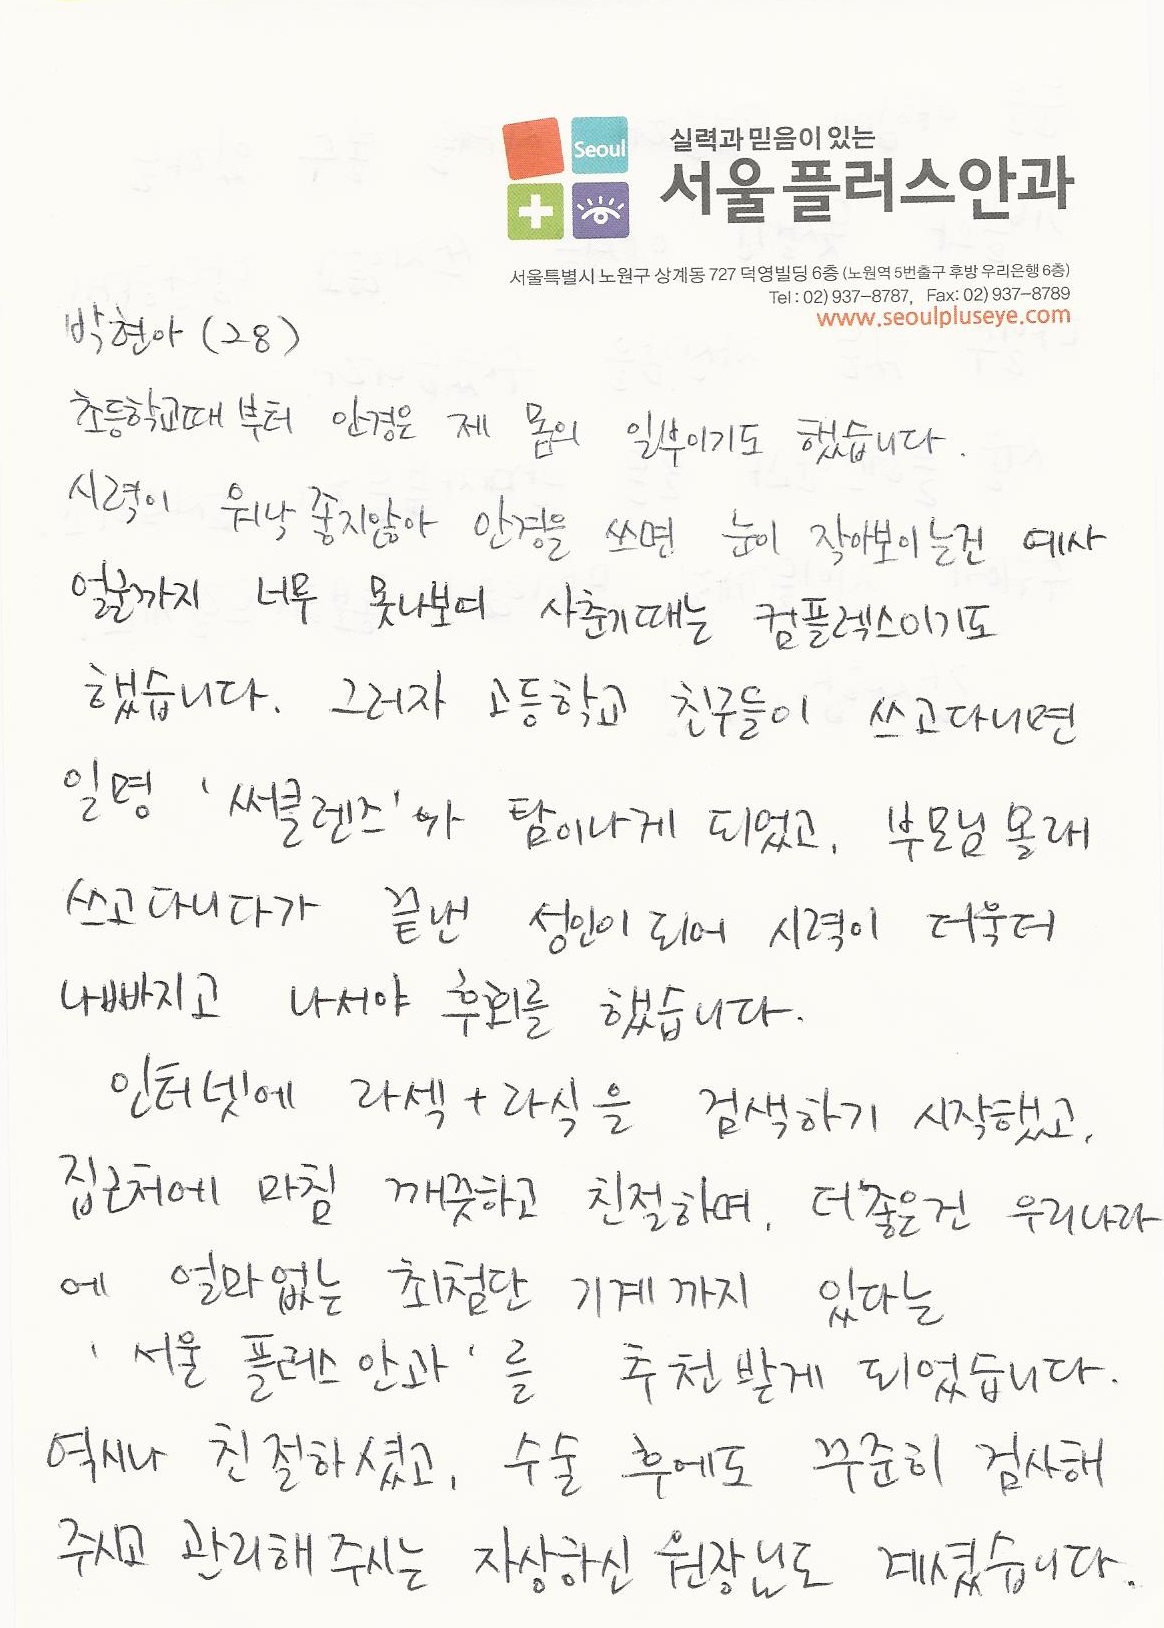 Seoul
실력과 믿음이 있는
서울플러스안과
서울특별시 노원구 상계동 727 덕영빌딩 6층 (노원역 5번출구 후방 우리은행 6층)
Tel : 02) 937-8787, Fax: 02) 937-8789
www.seoulpluseye.com
박현아 (28)
초등학교때부터 안경은 제 몸의 일부이기도 했습니다.
시력이 워낙 좋지않아 안경을 쓰면 눈이 작아보이는건 예사
얼굴까지 너무 못나보여 사춘기때는 컴플렉스이기도
했습니다. 그러자 고등학교 친구들이 쓰고다니면
일명 '써클렌즈'가 탐이나게 되었고, 부모님 몰래
쓰고다니다가 끝낸 성인이 되어 시력이 더욱더
나빠지고 나서야 후회를 했습니다.
인터넷에 라섹+라식을 검색하기 시작했고,
집근처에 마침 깨끗하고 친절하며, 더좋은건 우리나라
에 얼마없는 최첨단 기계까지 있다는
'서울 플러스안과'를 추천받게 되었습니다.
역시나 친절하셨고, 수술 후에도 꾸준히 검사해
주시고 관리해주시는 자상하신 원장님도 계셨습니다.